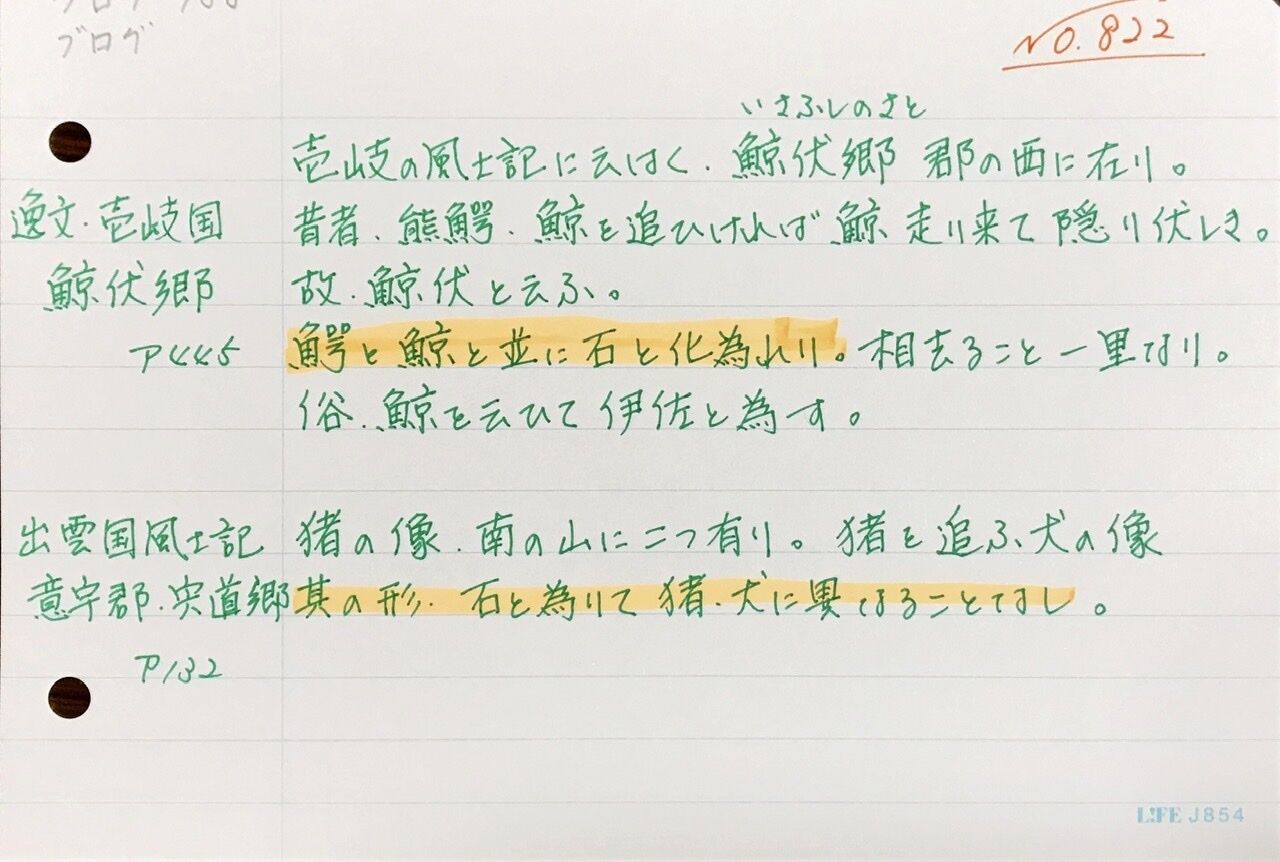 ブログ
NO.822
いさふしのさと
壱岐の風土記に云はく．鯨伏郷 郡の西に在り。
逸文．壱岐国
昔者．熊鰐．鯨を追ひければ鯨 走り来て 隠り伏しき。
鯨伏郷
故．鯨伏と云ふ。
P445
鰐と鯨と並に石と化為れり。相去ること一里なり。
俗．鯨を云ひて伊佐と為す。
出雲国風土記
猪の像．南の山に二つ有り。猪を追ふ犬の像
意宇郡．宍道郷
其の形．石と為りて猪．犬に異なることなし。
P132
LIFE J854